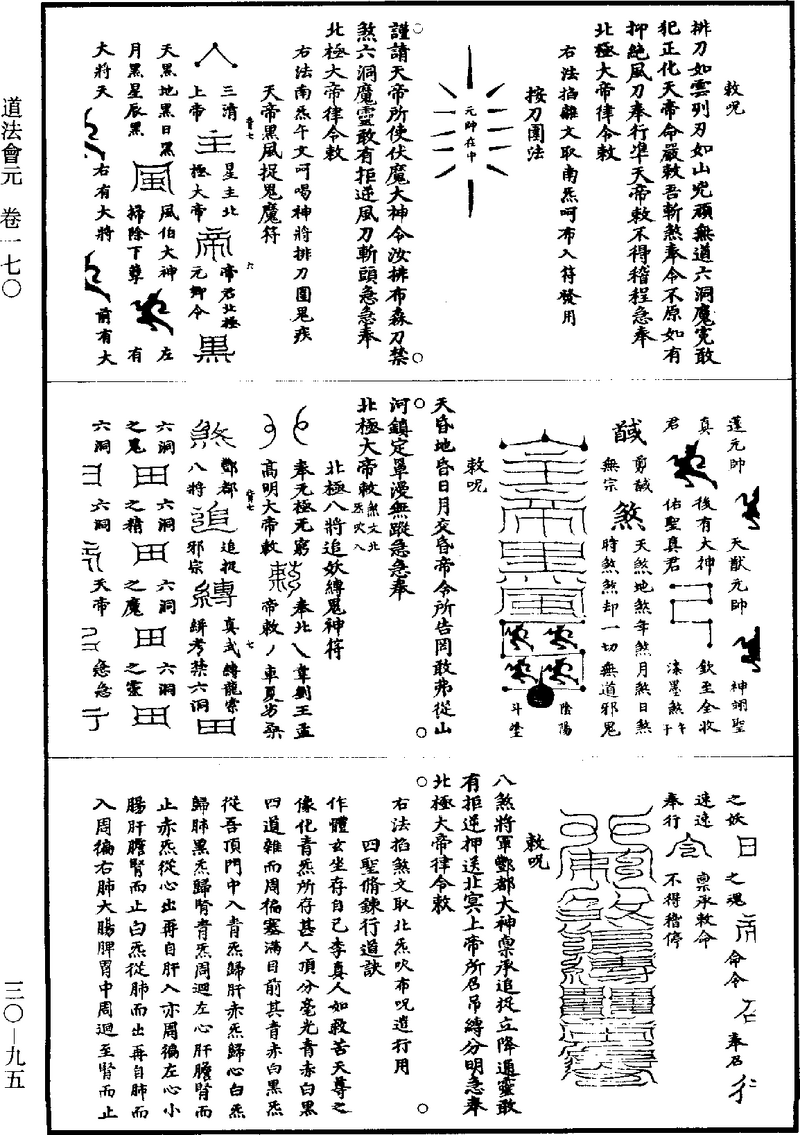 道法會元　卷一七〇
三〇—九五
敕呪
排刀如雲列刃如山兇頑無道六洞魔寃敢
犯正化天帝命嚴敕吾斬煞奉令不原如有
抑絕風刀奉行準天帝敕不得稽程急奉
北極大帝律令敕
右法掐離文取南炁呵布入符發用
按刀圍法
元帥在中
謹請天帝所使伏魔大神令汝排布森刀禁
煞六洞魔靈敢有拒逆風刀斬頭急急奉
北極大帝律令敕
右法南炁午文呵喝神將排刀圍鬼疾
天帝黑風捉鬼魔符
三清
上帝
主
星主北
極大帝
帝
帝君北極
元卿令
黑
天黑地黑日黑
月黑星辰黑
風
風伯大神
掃除下尊
左
有
大將天
右有大將
前有大
蓬元帥
天猷元帥
神翊聖
真
君
後有大神
佑聖真君
欽至全收
漆墨煞
馘
剪馘
無宗
煞
天煞地煞年煞月煞日煞
時煞煞却一切無道邪鬼
陰陽
斗堂
敕呪
天昏地昏日月交昏帝令所告罔敢弗從山
河鎮定罩漫無蹤急急奉
北極大帝敕
煞文北
炁吹入
北極八將追妖縛鬼神符
奉元極元窮
高明大帝敕
奉北
帝敕
韋劉王孟
車夏劣桑
煞
酆都
八將
追
追捉
邪宗
縛
真武縛龍索
絣考禁六洞
田
六洞
之鬼
田
六洞
之精
田
六洞
之魔
田
六洞
之靈
田
六洞
六洞
天帝
急急
之妖
日
之魂
命令
奉召
速速
奉行
稟承敕命
不得稽停
敕呪
八煞將軍酆都大神稟承追捉立降通靈敢
有拒逆押送北冥上帝所召吊縛分明急奉
北極大帝律令敕
右法掐煞文取北炁吹布呪遣行用
四聖脩鍊行道訣
作體玄坐存自己李真人如救苦天尊之
像化青炁所存甚人頂分毫光青赤白黑
四道雜而周徧塞滿目前其青赤白黑炁
從吾頂門中入青炁歸肝赤炁歸心白炁
歸肺黑炁歸腎青炁周迴左心肝膽腎而
止赤炁從心出再自肝入亦周徧左心小
腸肝膽腎而止白炁從肺而出再自肺而
入周徧右肺大腸脾胃中周迴至腎而止